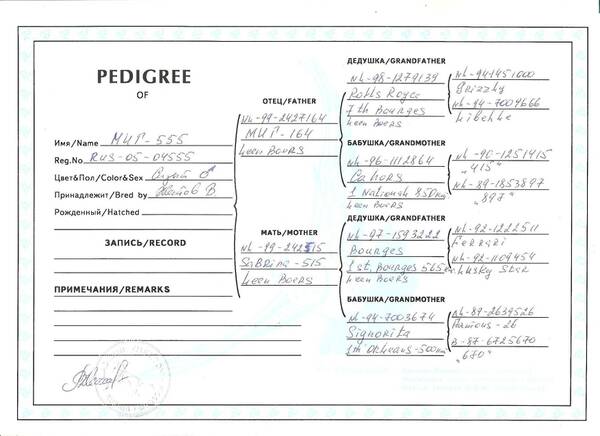 PEDIGREE
OF
Имя/Name МИГ-555
Reg.No RUS-05-04555
Цвет&Пол/Color&Sex ♂
Принадлежит/Bred by В.
Рожденный/Hatched
ЗАПИСЬ/RECORD
ПРИМЕЧАНИЯ/REMARKS
ОТЕЦ/FATHER
NL-99-2427164
МИГ-164
Leen Boers
МАТЬ/MOTHER
NL-99-242515
SaBRina-515
Leen Boers
ДЕДУШКА/GRANDFATHER
NL-98-1279139
Rolls Royce
7th Bourges
Leen Boers
БАБУШКА/GRANDMOTHER
NL-96-1112864
Cahors
1 National 850km
Leen Boers
ДЕДУШКА/GRANDFATHER
NL-97-1593222
Bourges
1st. Bourges
Leen Boers
БАБУШКА/GRANDMOTHER
NL-94-7003674
Signorita
1st Orleans-500km
NL-94-1451000
Grizzly
NL-94-7009666
Libelle
NL-90-1251415
"415"
NL-89-1853897
"897"
NL-92-1222511
Ferrari
NL-92-1109454
Lusky Star
NL-89-2639526
Famous-26
B-87-6725670
"670"